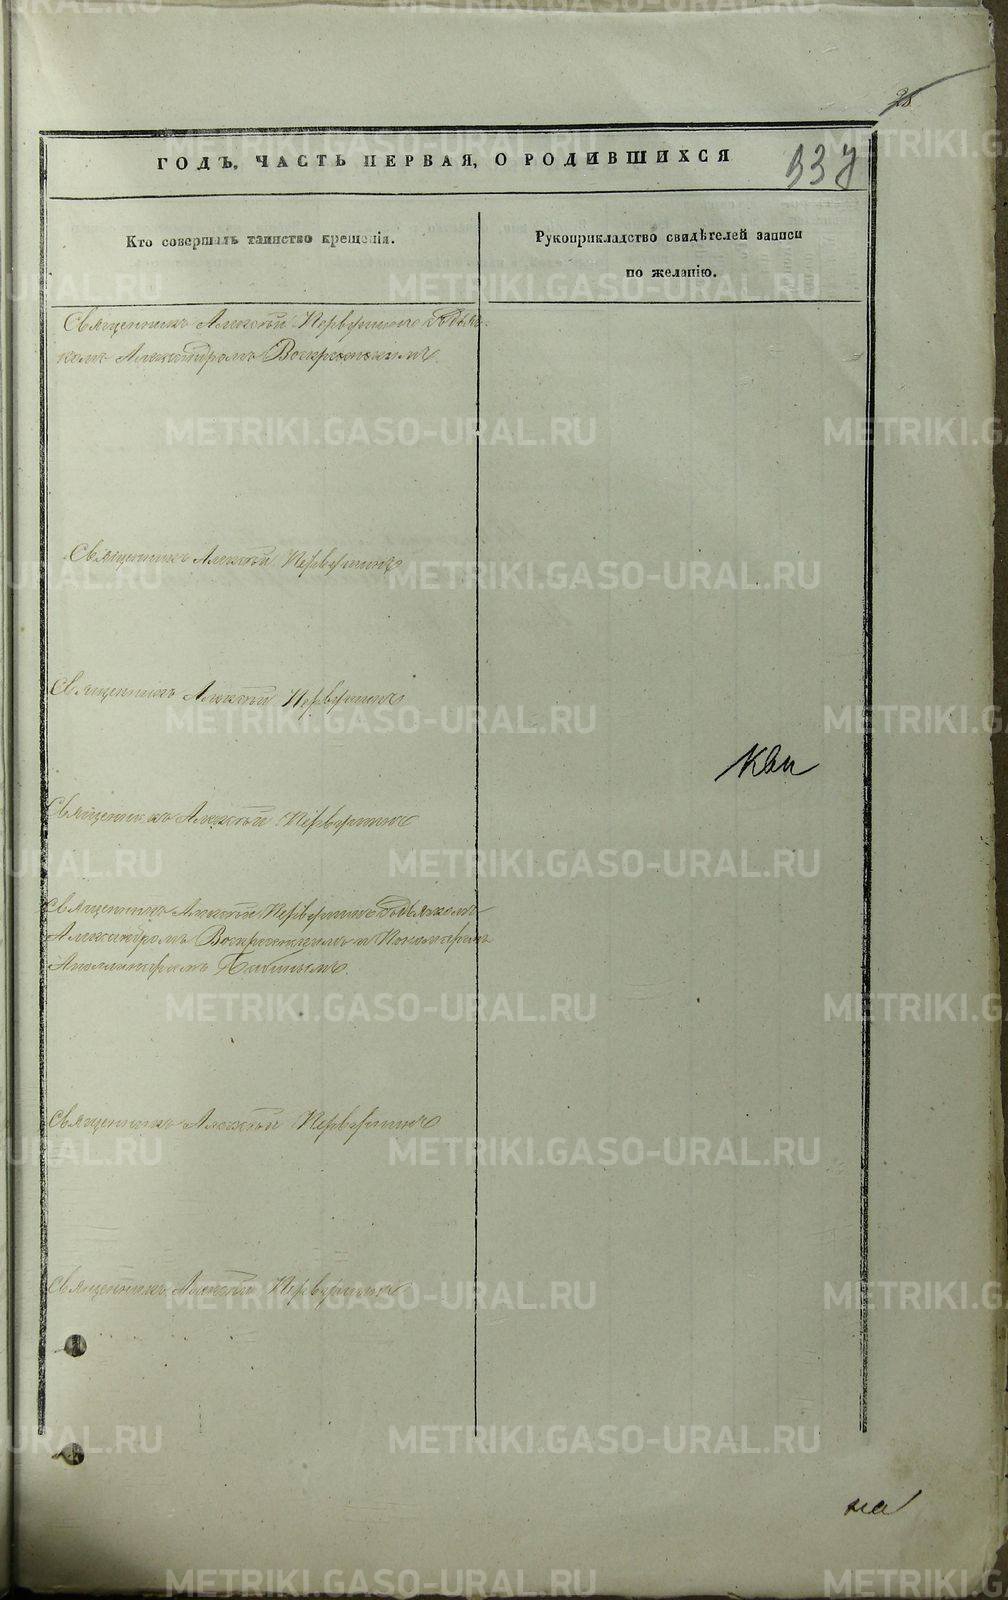 28
ГОДЪ, ЧАСТЬ ПЕРВАЯ, О РОДИВШИХСЯ
337
Кто совершалъ таинство крещенія.
Рукоприкладство свидѣтелей записи
по желанію.
Священникъ Алексѣй Первушинъ съ дьяч-
комъ Александромъ Воскресенскимъ.
Священникъ Алексѣй Первушинъ
Священникъ Алексѣй Первушинъ
Священникъ Алексѣй Первушинъ
Священникъ Алексѣй Первушинъ съ дьячкомъ
Александромъ Воскресенскимъ и Пономаремъ
Аполлинаріемъ Бабинымъ.
Священникъ Алексѣй Первушинъ
Священникъ Алексѣй Первушинъ
METRIKI.GASO-URAL.RU